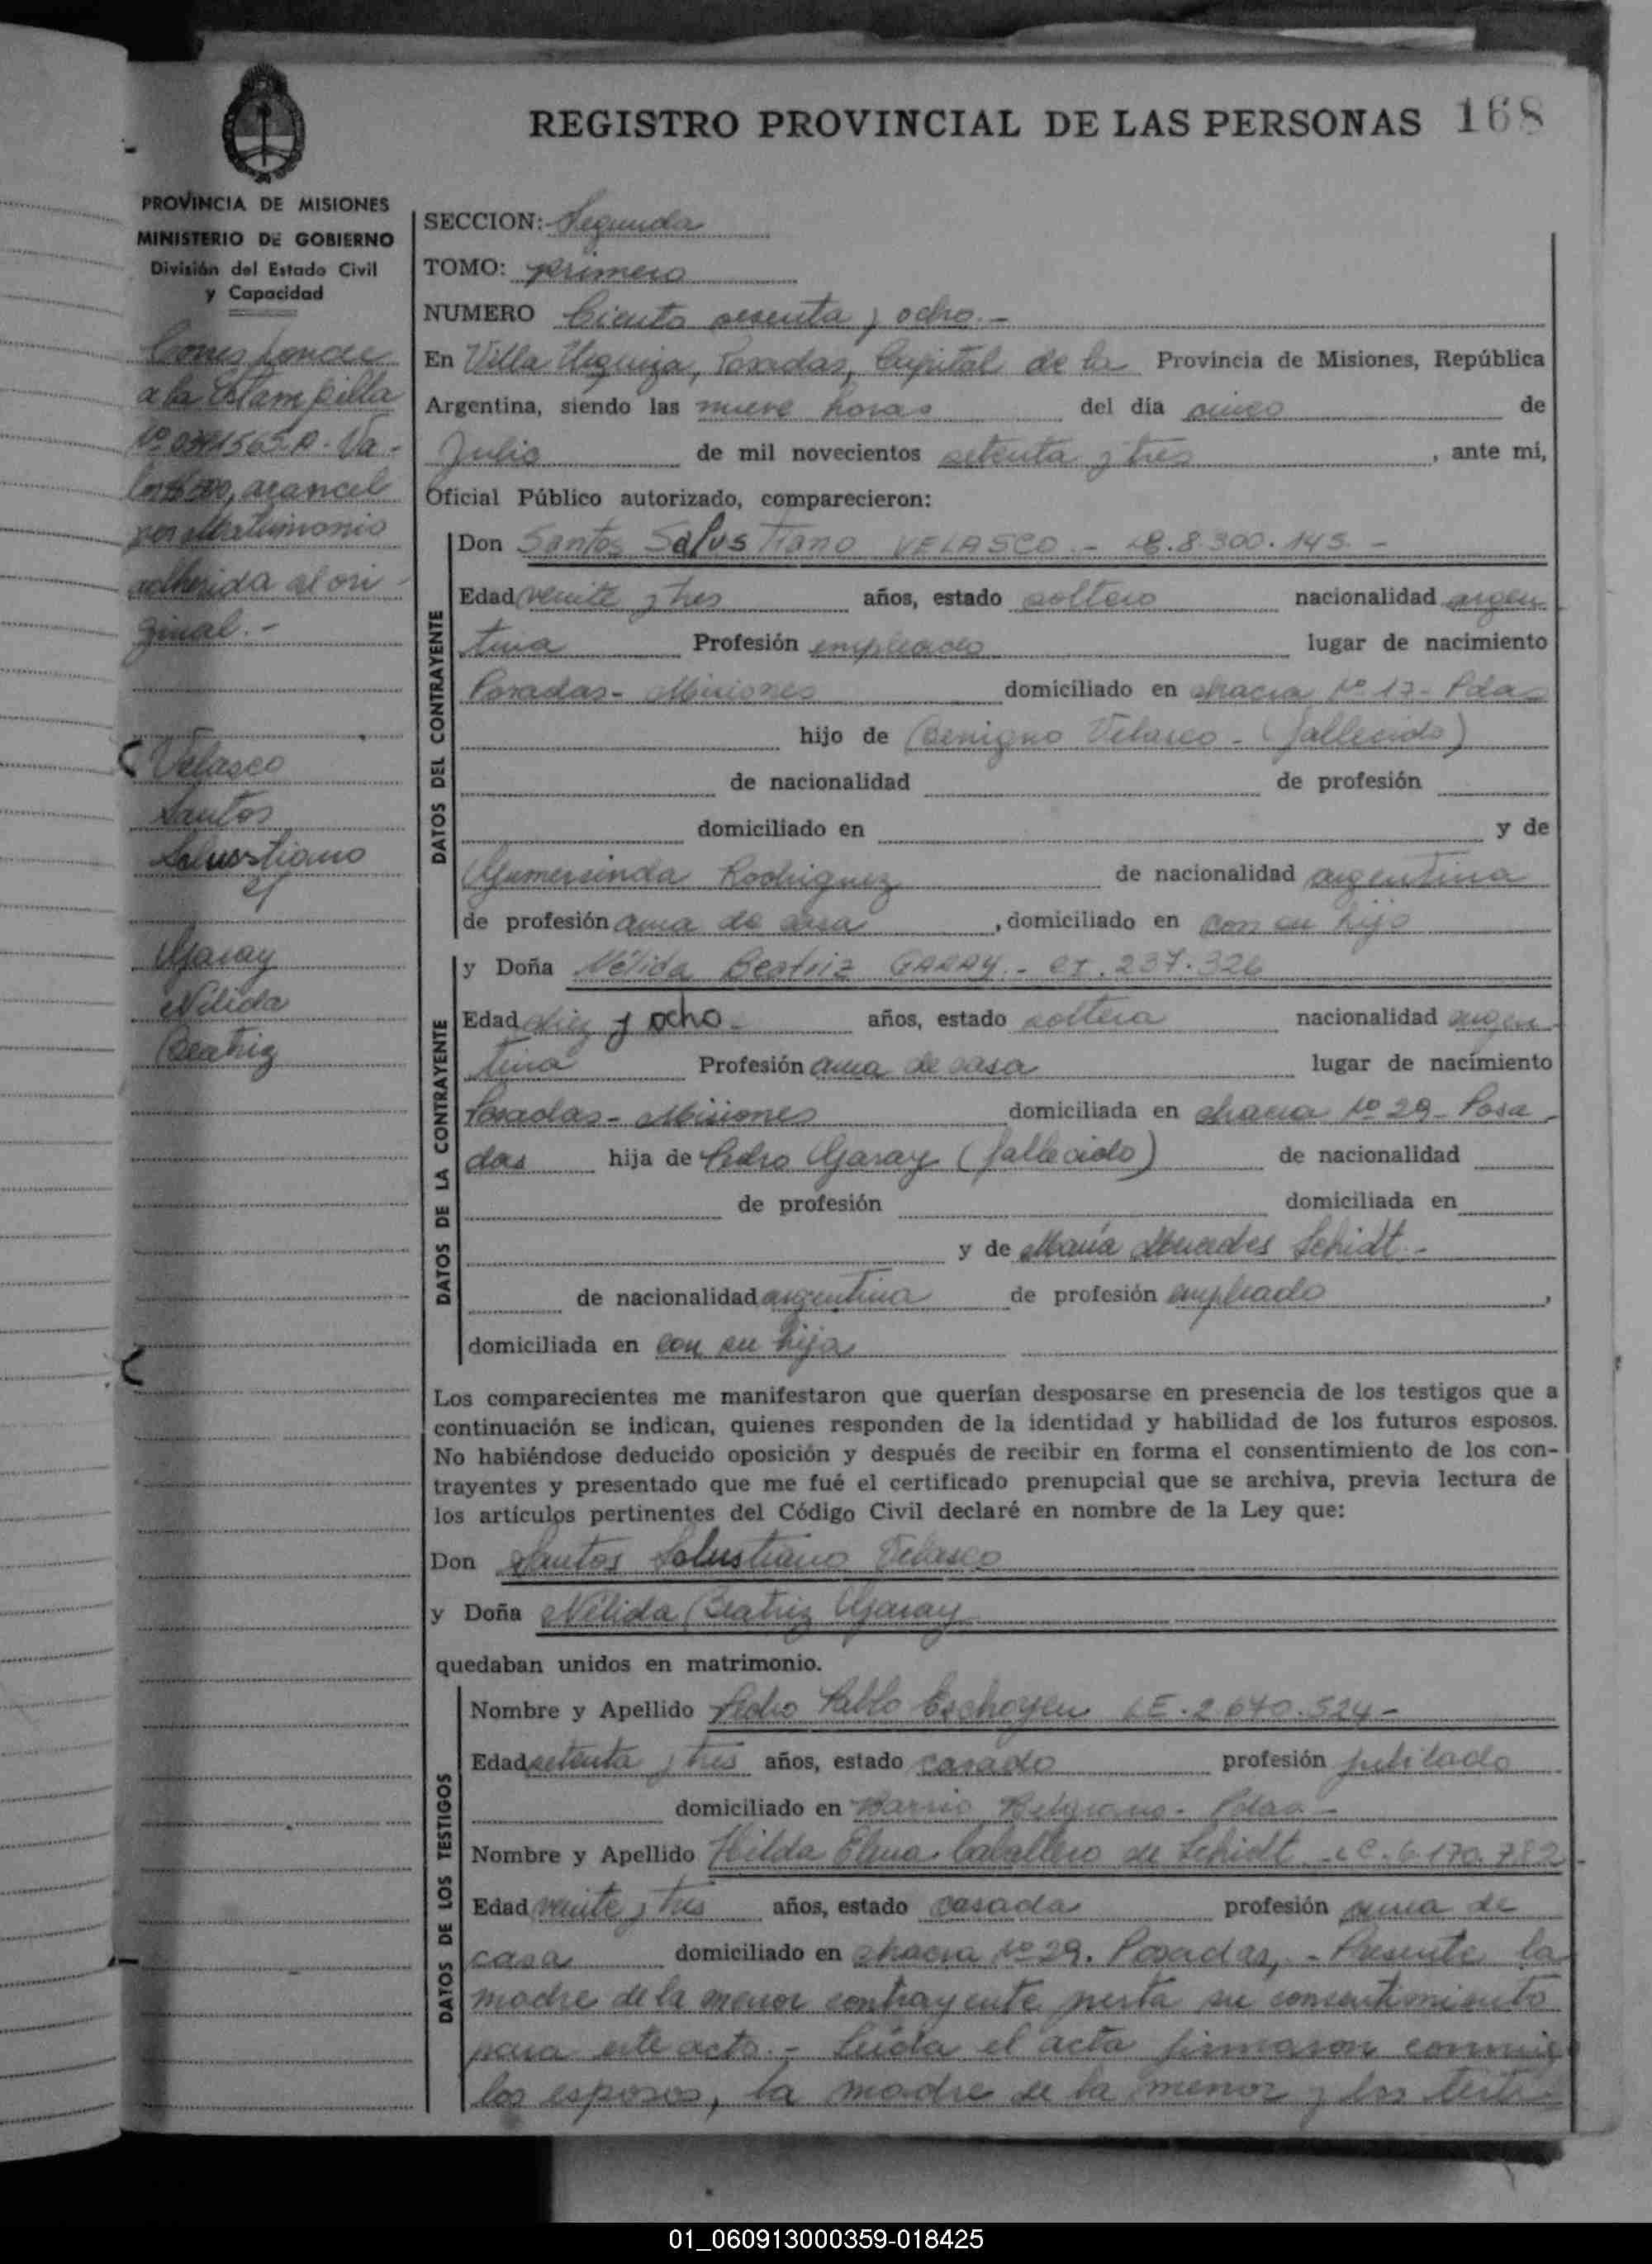 REGISTRO PROVINCIAL DE LAS PERSONAS 168
PROVINCIA DE MISIONES
MINISTERIO DE GOBIERNO
División del Estado Civil
y Capacidad
Corresponde
a la Estampilla
Va-
arancel
por Matrimonio
adherida al ori-
ginal.-
Velasco
Santos
Salustiano
y
Garay
Nélida
Beatriz
SECCION: Segunda
TOMO: primero
NUMERO Ciento sesenta y ocho.-
En Villa Urquiza, Posadas, Capital de la Provincia de Misiones, República
Argentina, siendo las nueve horas del día cinco de
Julio de mil novecientos setenta y tres, ante mi,
Oficial Público autorizado, comparecieron:
DATOS DEL CONTRAYENTE
Don Santos Salustiano VELASCO - 8.300.145.-
Edad veinte y tres años, estado soltero nacionalidad argen
tina Profesión empleado lugar de nacimiento
Posadas- Misiones domiciliado en chacra Nº 17- Pdas
hijo de Benigno Velasco - (fallecido)
de nacionalidad de profesión
domiciliado en y de
Gumersinda Rodriguez de nacionalidad argentina
de profesión ama de casa, domiciliado en con su hijo
DATOS DE LA CONTRAYENTE
y Doña Nélida Beatriz GARAY.- 237.326
Edad diez y ocho.- años, estado soltera nacionalidad argen
tina Profesión ama de casa lugar de nacimiento
Posadas- Misiones domiciliada en chacra Nº 29- Posa
das hija de Pedro Garay (fallecido) de nacionalidad
de profesión domiciliada en
y de María Mercedes Schidt.-
de nacionalidad argentina de profesión empleado,
domiciliada en con su hija
Los comparecientes me manifestaron que querían desposarse en presencia de los testigos que a
continuación se indican, quienes responden de la identidad y habilidad de los futuros esposos.
No habiéndose deducido oposición y después de recibir en forma el consentimiento de los con-
trayentes y presentado que me fué el certificado prenupcial que se archiva, previa lectura de
los artículos pertinentes del Código Civil declaré en nombre de la Ley que:
Don Santos Salustiano Velasco
y Doña Nélida Beatriz Garay
quedaban unidos en matrimonio.
DATOS DE LOS TESTIGOS
Nombre y Apellido Pedro Pablo Eschoyen LE.2.640.524-
Edad setenta y tres años, estado casado profesión jubilado
domiciliado en Barrio Belgrano- Pdas-
Nombre y Apellido Hilda Elena Caballero de Schidt LC.6.170.782-
Edad veinte y tres años, estado casada profesión ama de
casa domiciliado en chacra Nº 29. Posadas,- Presente la
madre de la menor contrayente presta su consentimiento
para este acto.- Leída el acta firmaron conmigo
los esposos, la madre de la menor y los testi-
01_060913000359-018425